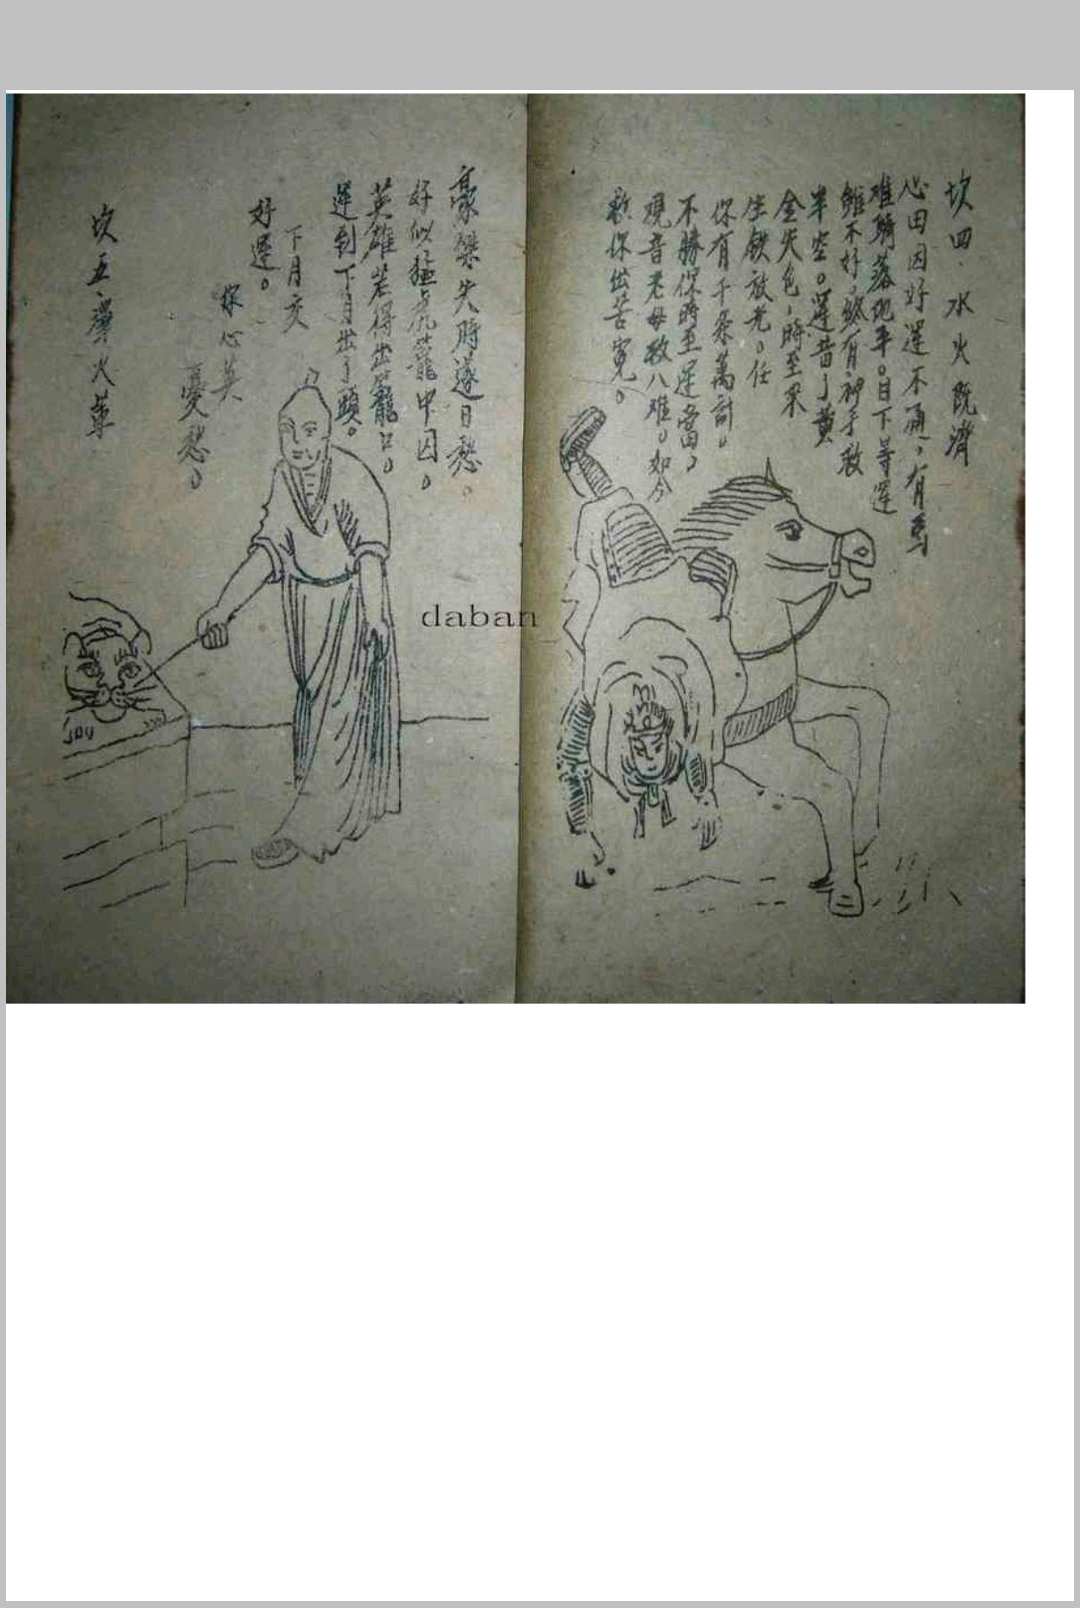 坎四、水火既濟
心田因好運不通，有馬
难騎落地平。目下等運
雖不好，終有神手救
半空。運昔了黄
金失色，時至來
生鉄放光。任
你有千条萬計。
不勝你時至運當。
觀音老母救八难。如今
救你出苦寃。
豪傑失時逐日愁。
好似猛虎籠中囚。
英雄若得出籠口。
運到下月出了頭。
下月交
好運。
你心莫
憂愁。
坎五、澤火革
daban